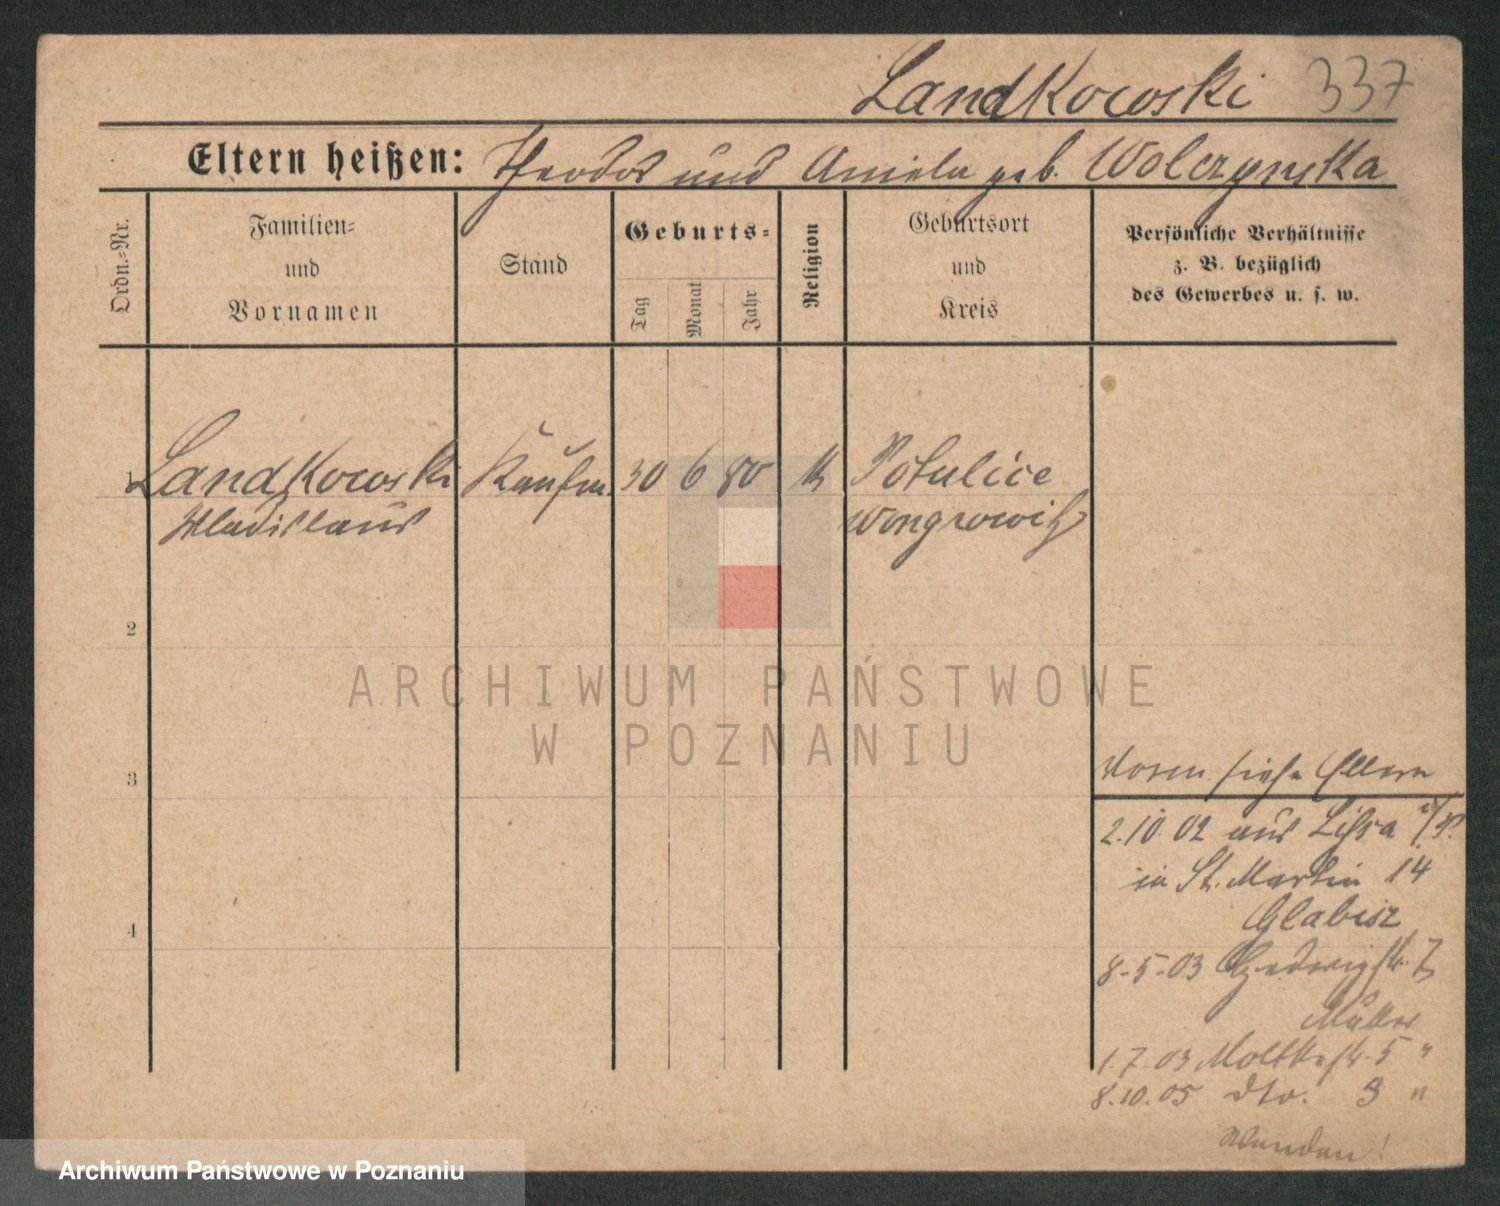 Landkowski 337
Eltern heißen: Theodor und Aniela geb. Wolczynska
Ordn.-Nr.
Familien-
und
Vornamen
Stand
Geburts-
Tag
Monat
Jahr
Religion
Geburtsort
und
Kreis
Persönliche Verhältnisse
z. B. bezüglich
des Gewerbes u. s. w.
1 Landkowski Kaufm. 30 6 80 k Potulice
Wladislaus Wongrowitz
2
ARCHIWUM PAŃSTWOWE
W POZNANIU
3
siehe Eltern
2.10.02 aus Lissa i/P.
in St. Martin 14
Glabisz
4
8.5.03 Hedwigstr. 7
Müller
1.7.03 Moltkestr. 5 "
8.10.05 dto. 3 "
Wenden!
Archiwum Państwowe w Poznaniu